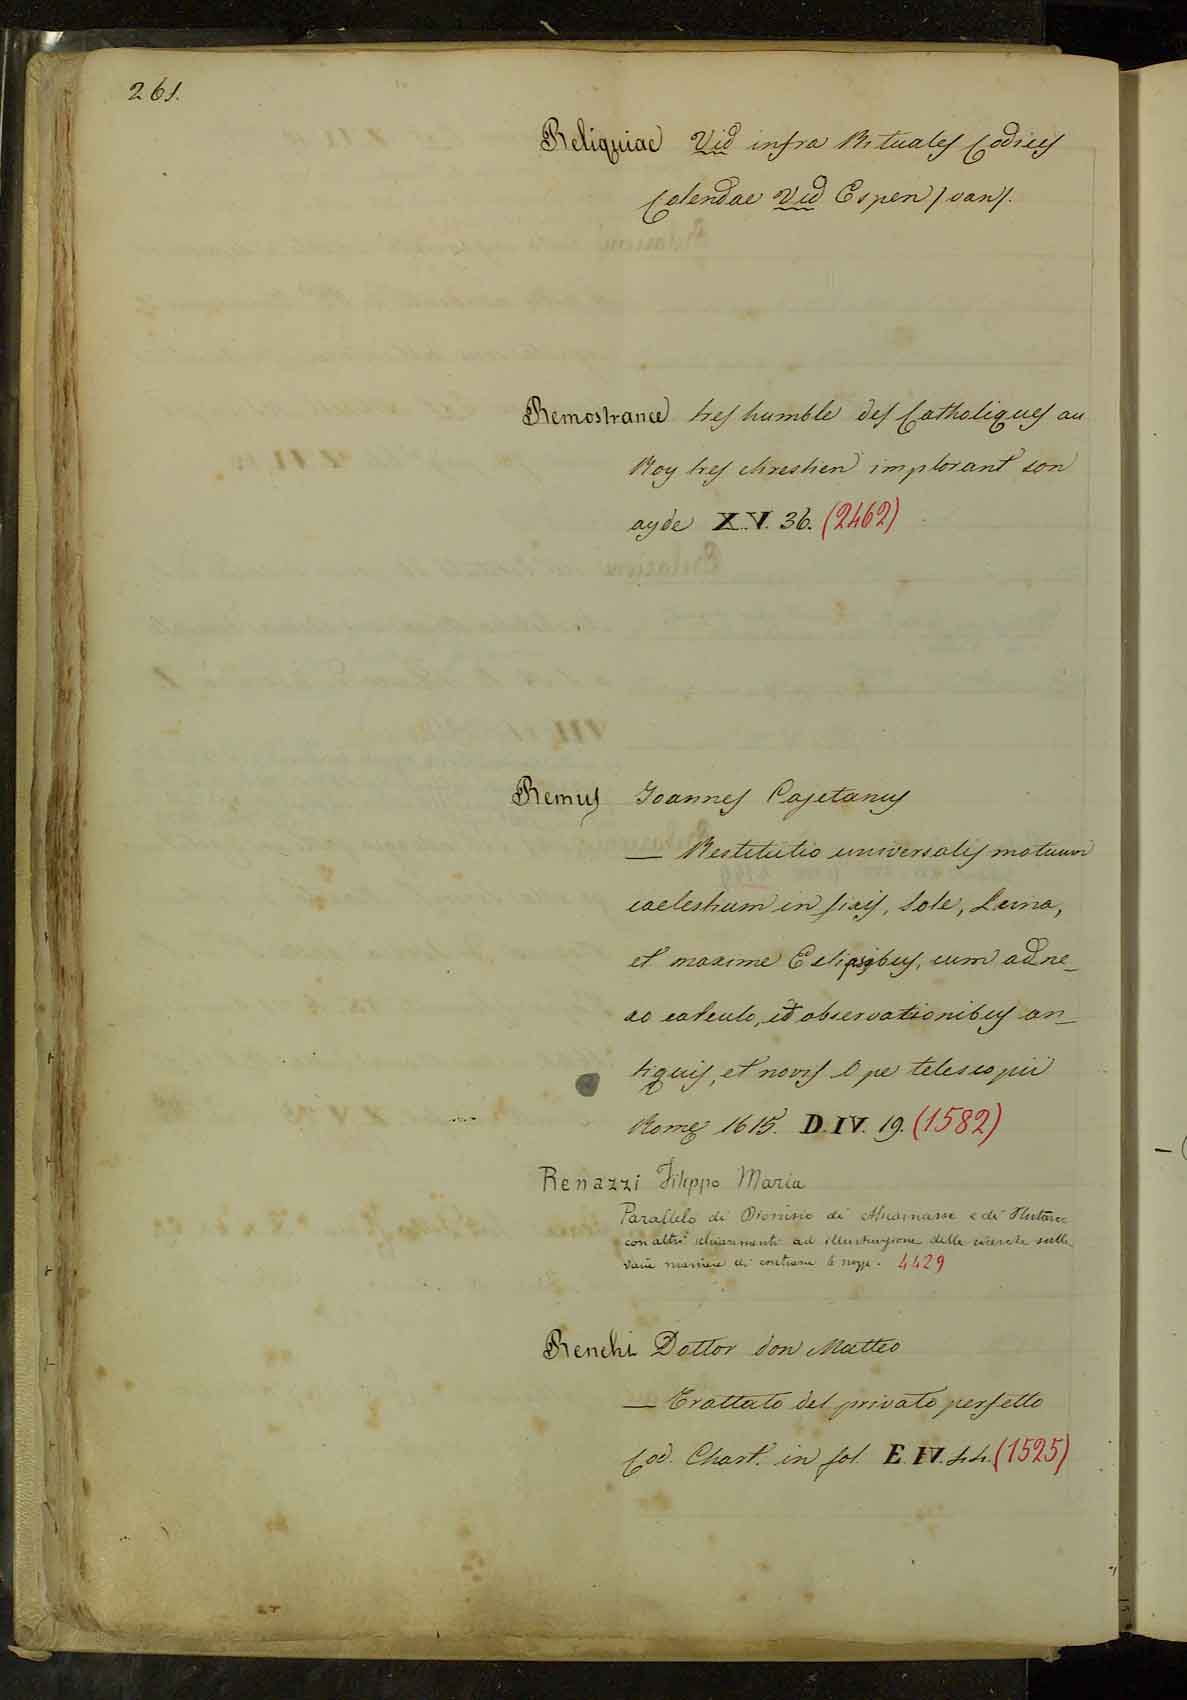 261.
Reliquiae Vid infra Rituales Codices
Colendae Vid Espen / van /.
Remostrance tres humble des Catholiques au
Roy tres chrestien implorant son
ayde X.V. 36. (2462)
Remus Joannes Cajetanus
— Restitutio universalis motuum
caelestium in fixis, Sole, Luna,
et maxime Eclipsibus, cum adne_
xo calculo, et observationibus an_
tiquis, et novis Ope telescopii
Rome 1615. D.IV. 19. (1582)
Renazzi Filippo Maria
Parallelo di Dionisio di Alicarnasse e di Plutarco
con altri schiarimenti ad illustrazione delle ricerche sulle
varie maniere di contrarre le nozze. 4429
Renchi Dottor don Matteo
— Trattato del privato perfetto
Cod. Chart. in fol. E.IV. 44. (1525)